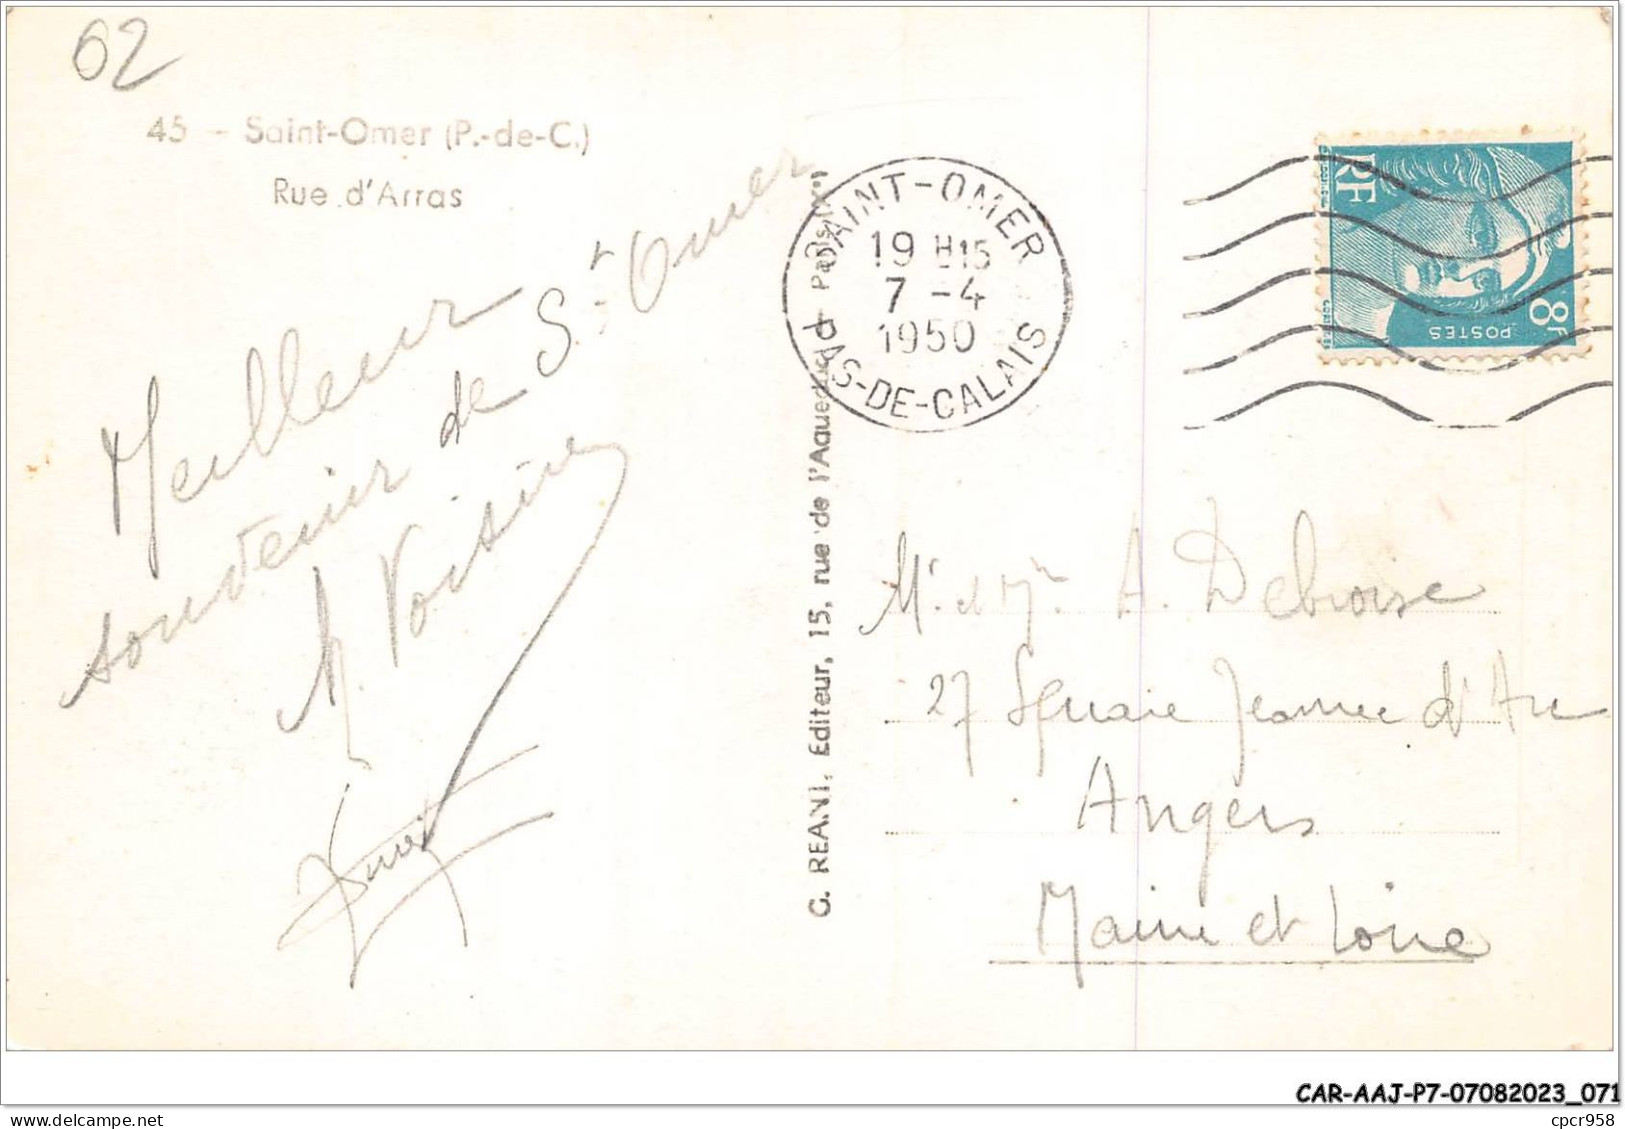 62
45 - Saint-Omer (P.-de-C.)
Rue d'Arras
Meilleur
souvenir de St Omer
Voisine
G. REANT, Éditeur, 15, rue de l'Aqueduc - Paris (X°)
SAINT-OMER
19 H15
7 -4
1950
PAS-DE-CALAIS
RF
POSTES
8F
Mr. et Me. A. Debroise
27 Square Jeanne d'Arc
Angers
Maine et Loire
CAR-AAJ-P7-07082023_071
cpcr958